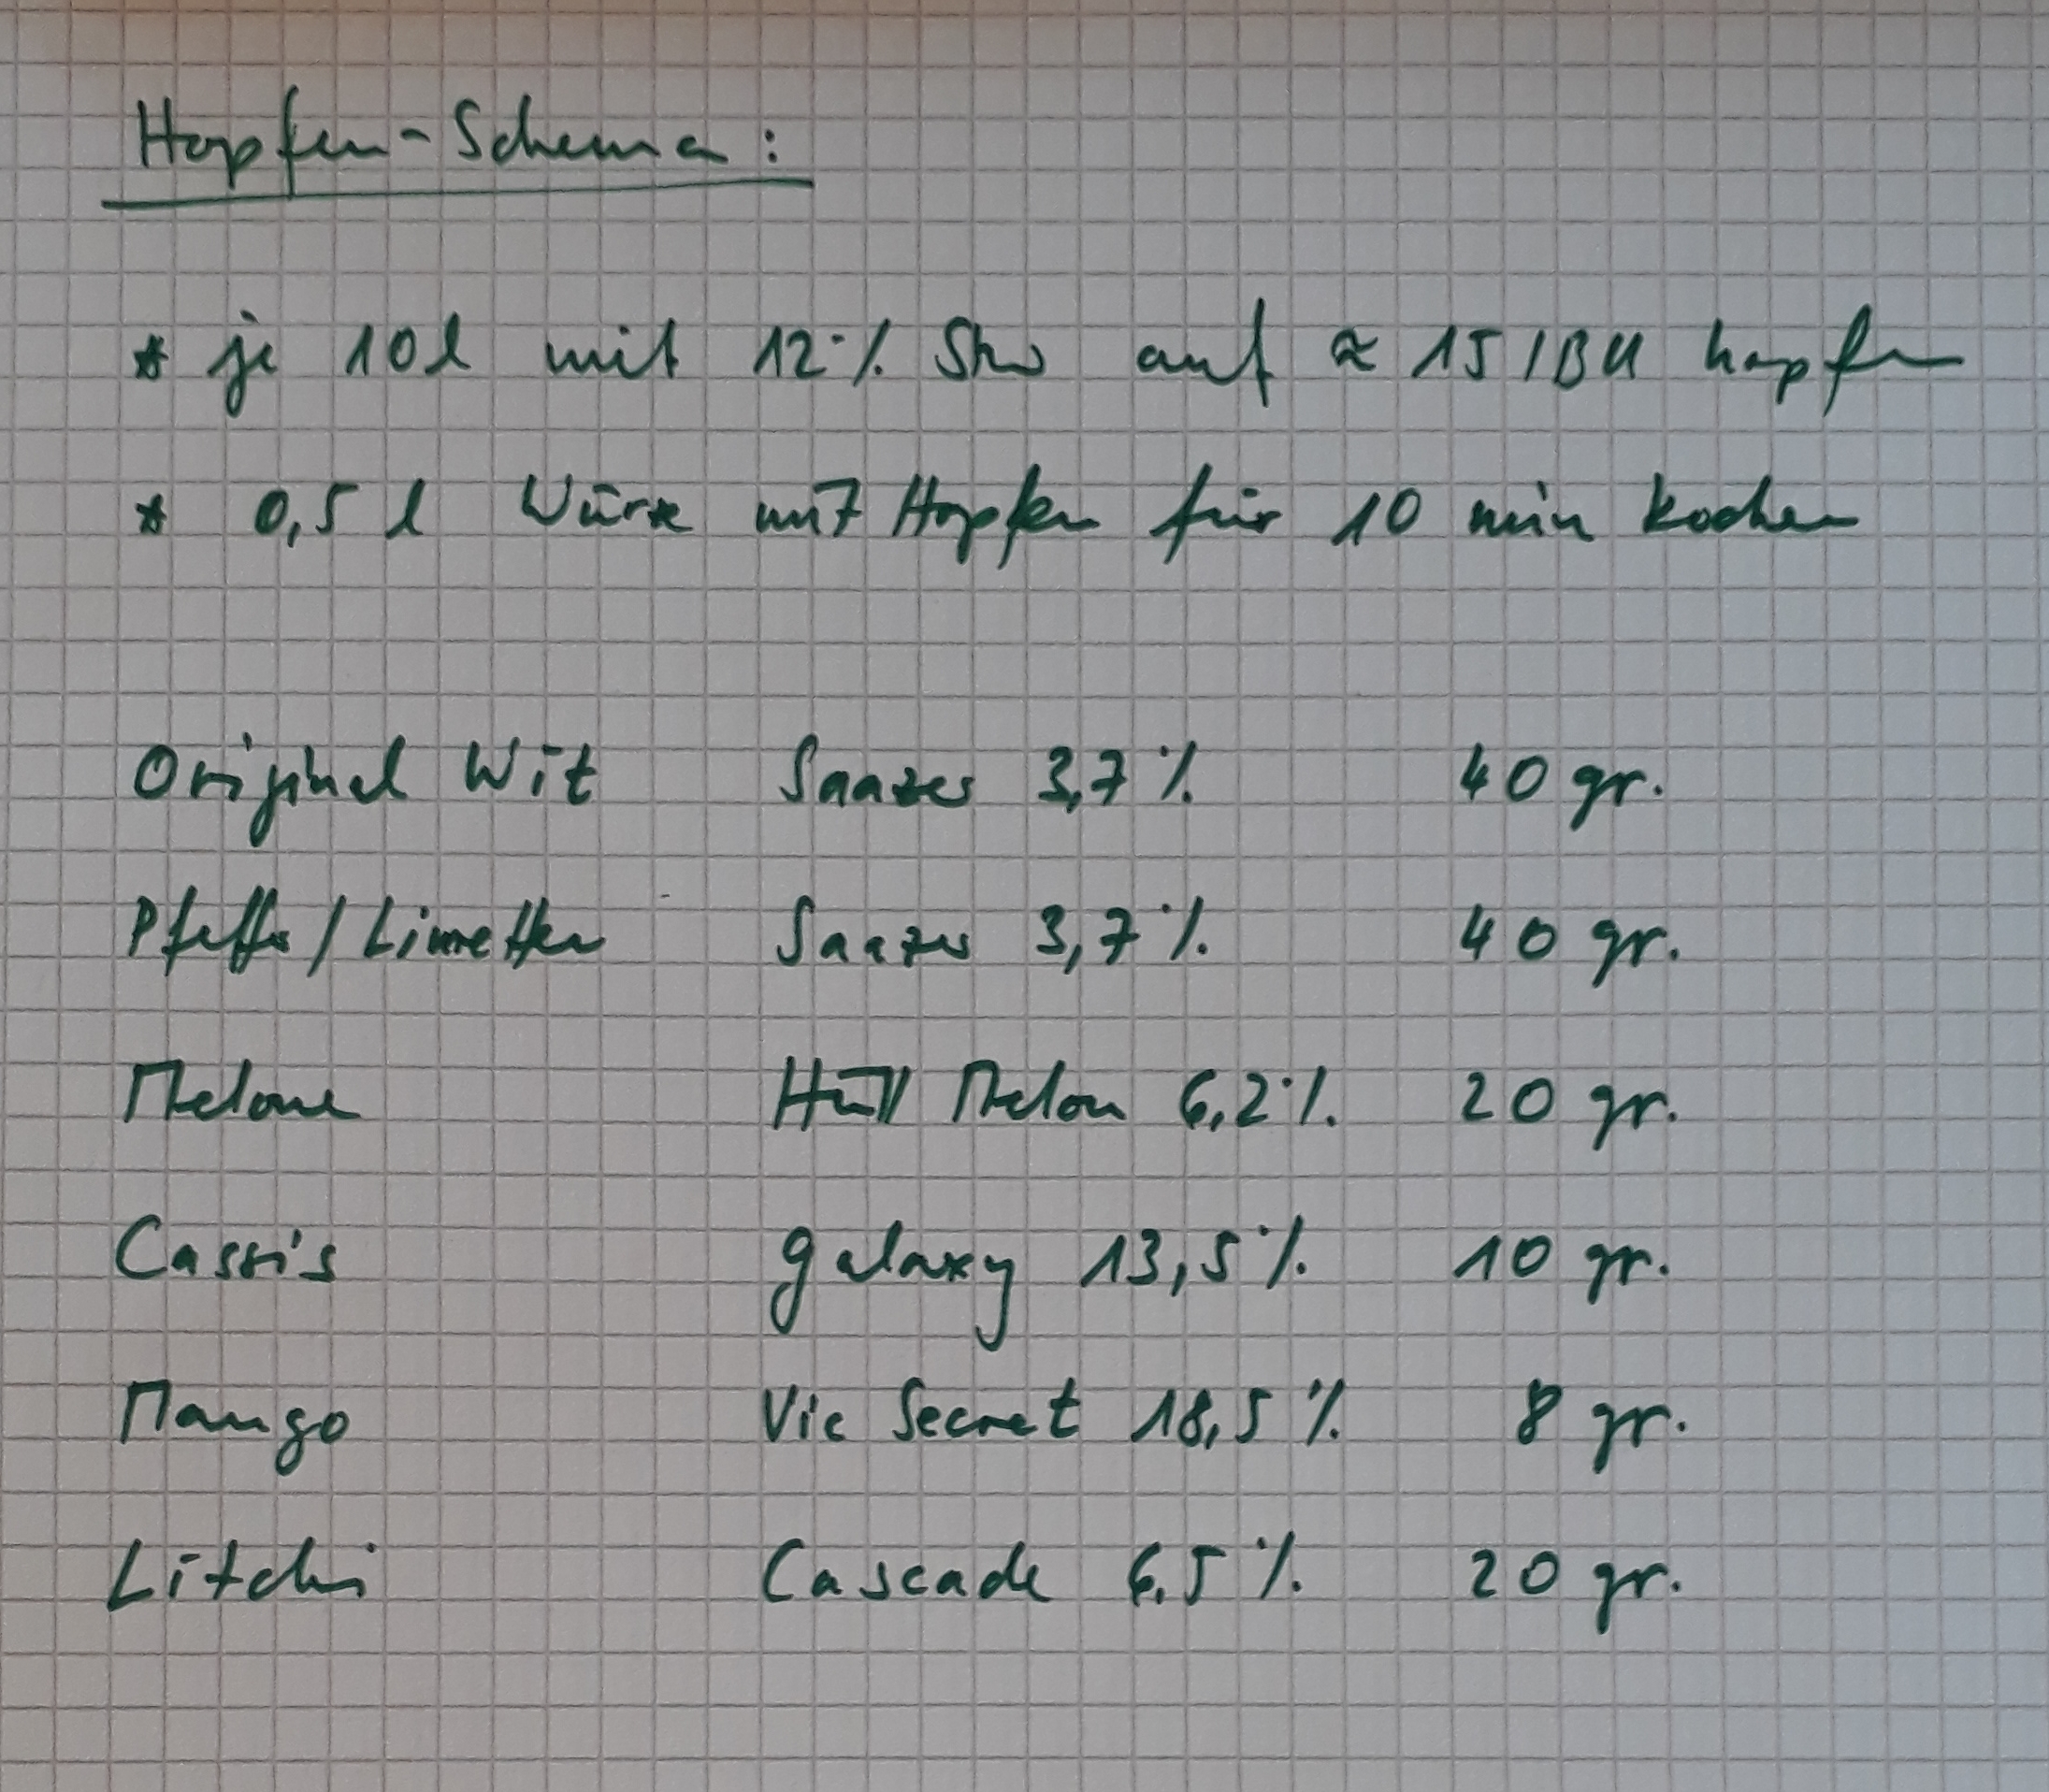 Hopfen-Schema:
* je 10 l mit 12% Stw auf ≈ 15 IBU hopfen
* 0,5 l Würze mit Hopfen für 10 min kochen
Original Wit Saazer 3,7% 40 gr.
Pfeffer/Limetten Saazer 3,7% 40 gr.
Melone Hüll Melon 6,2% 20 gr.
Cassis Galaxy 13,5% 10 gr.
Mango Vic Secret 18,5% 8 gr.
Litchi Cascade 6,5% 20 gr.